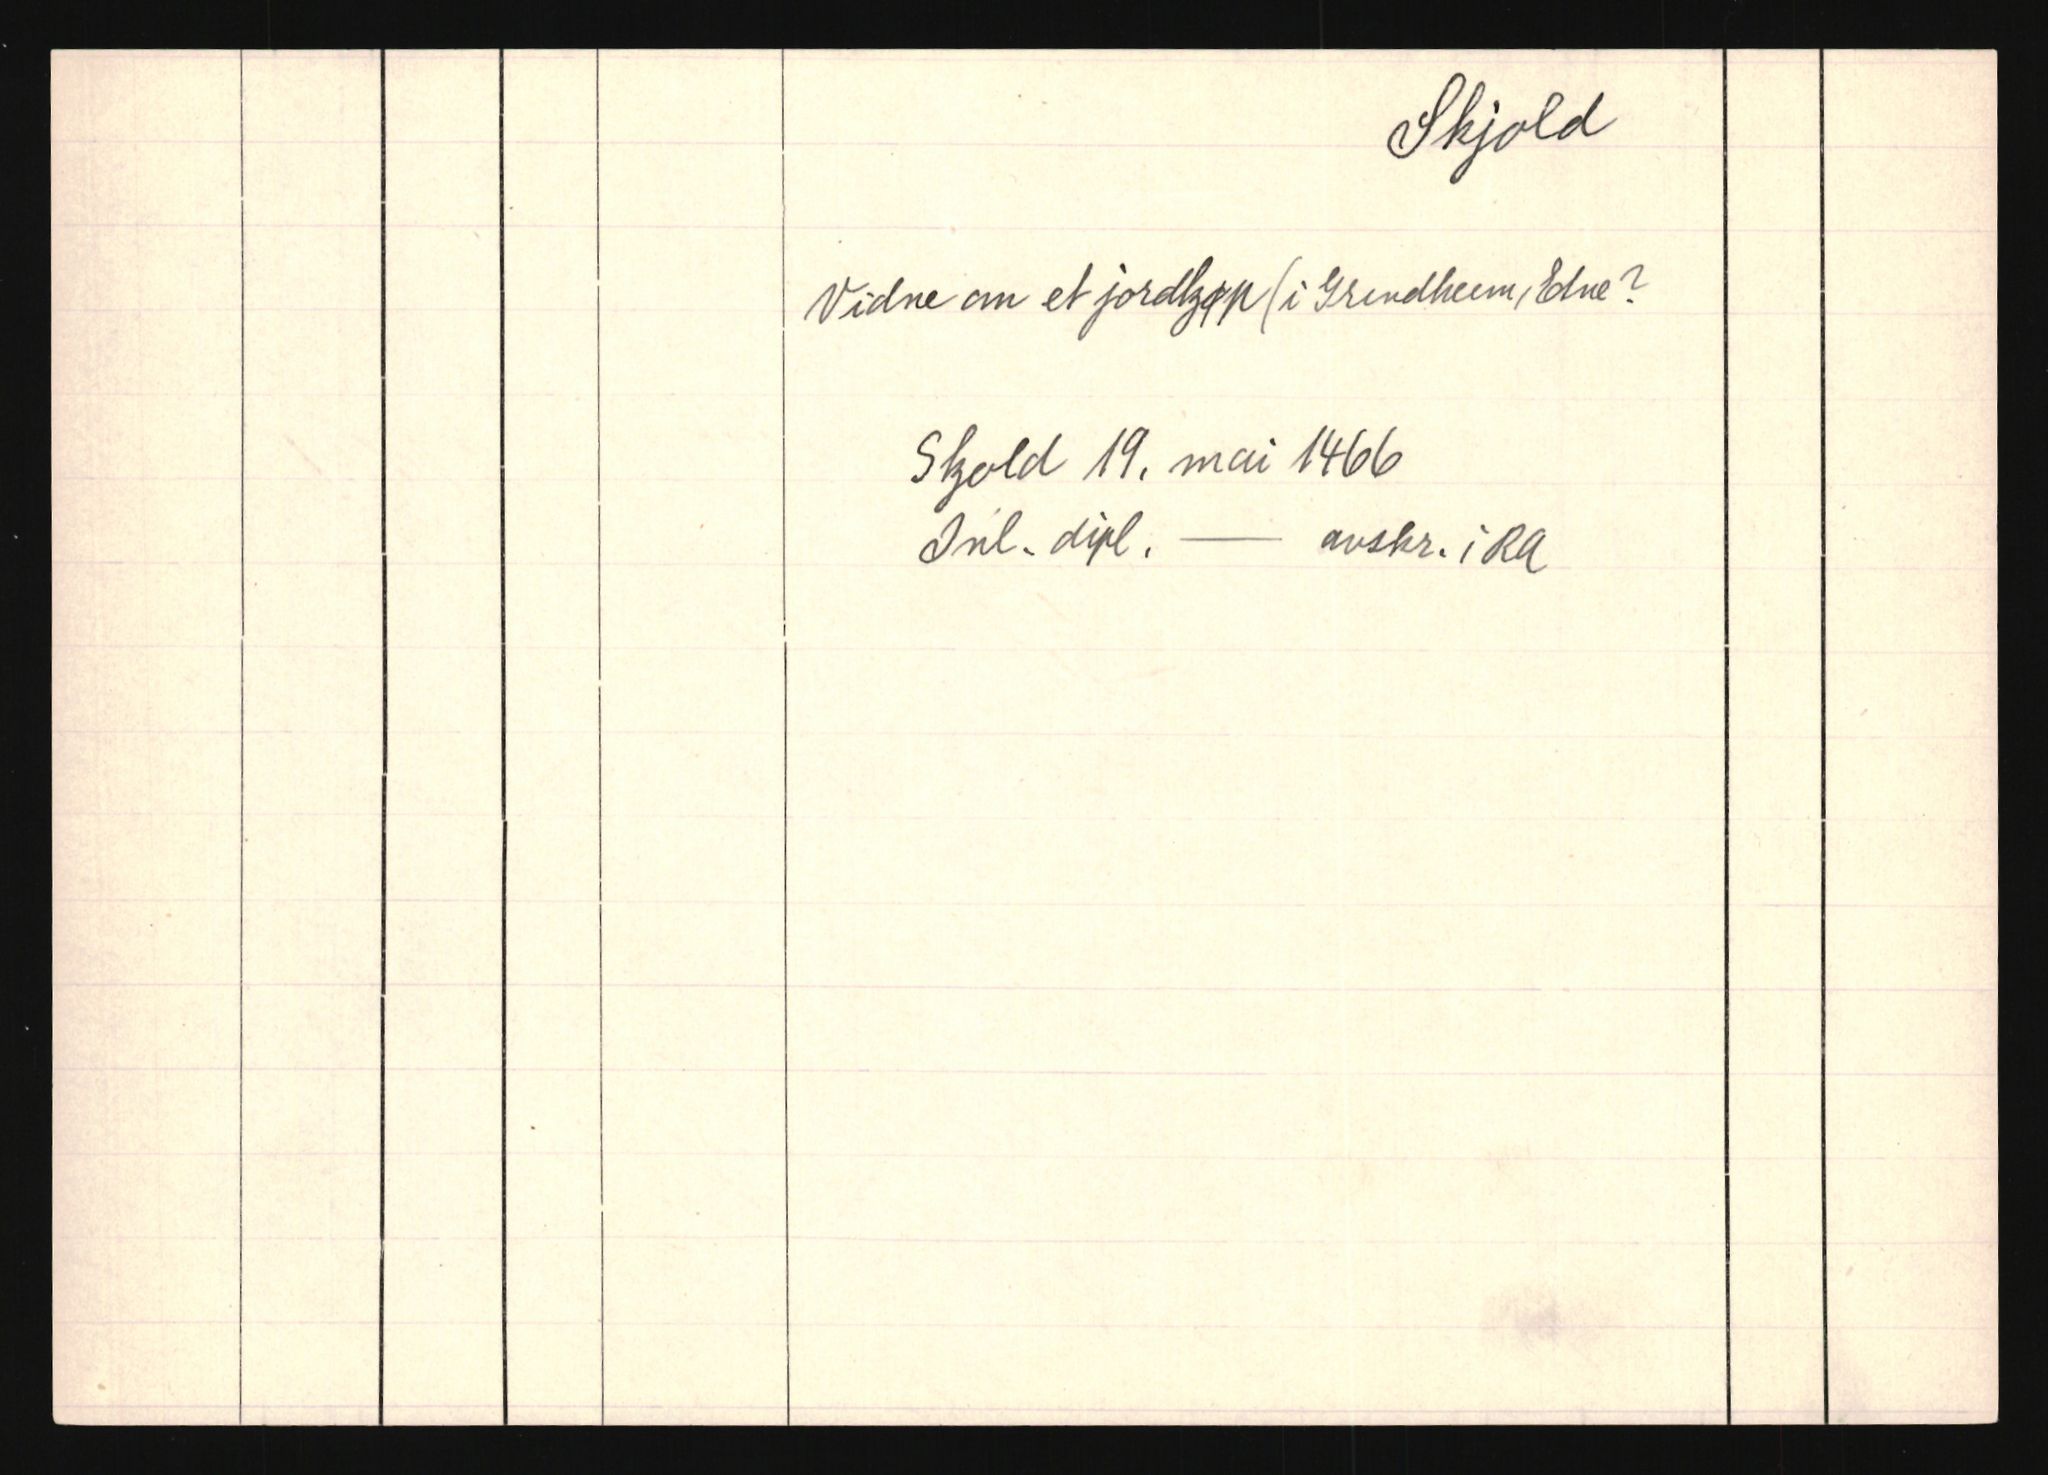 Skjold
Vidne om et jordkjøp (i Grindheim, Edne?
Skjold 19. mai 1466
Inl. dipl. — avskr. i RA